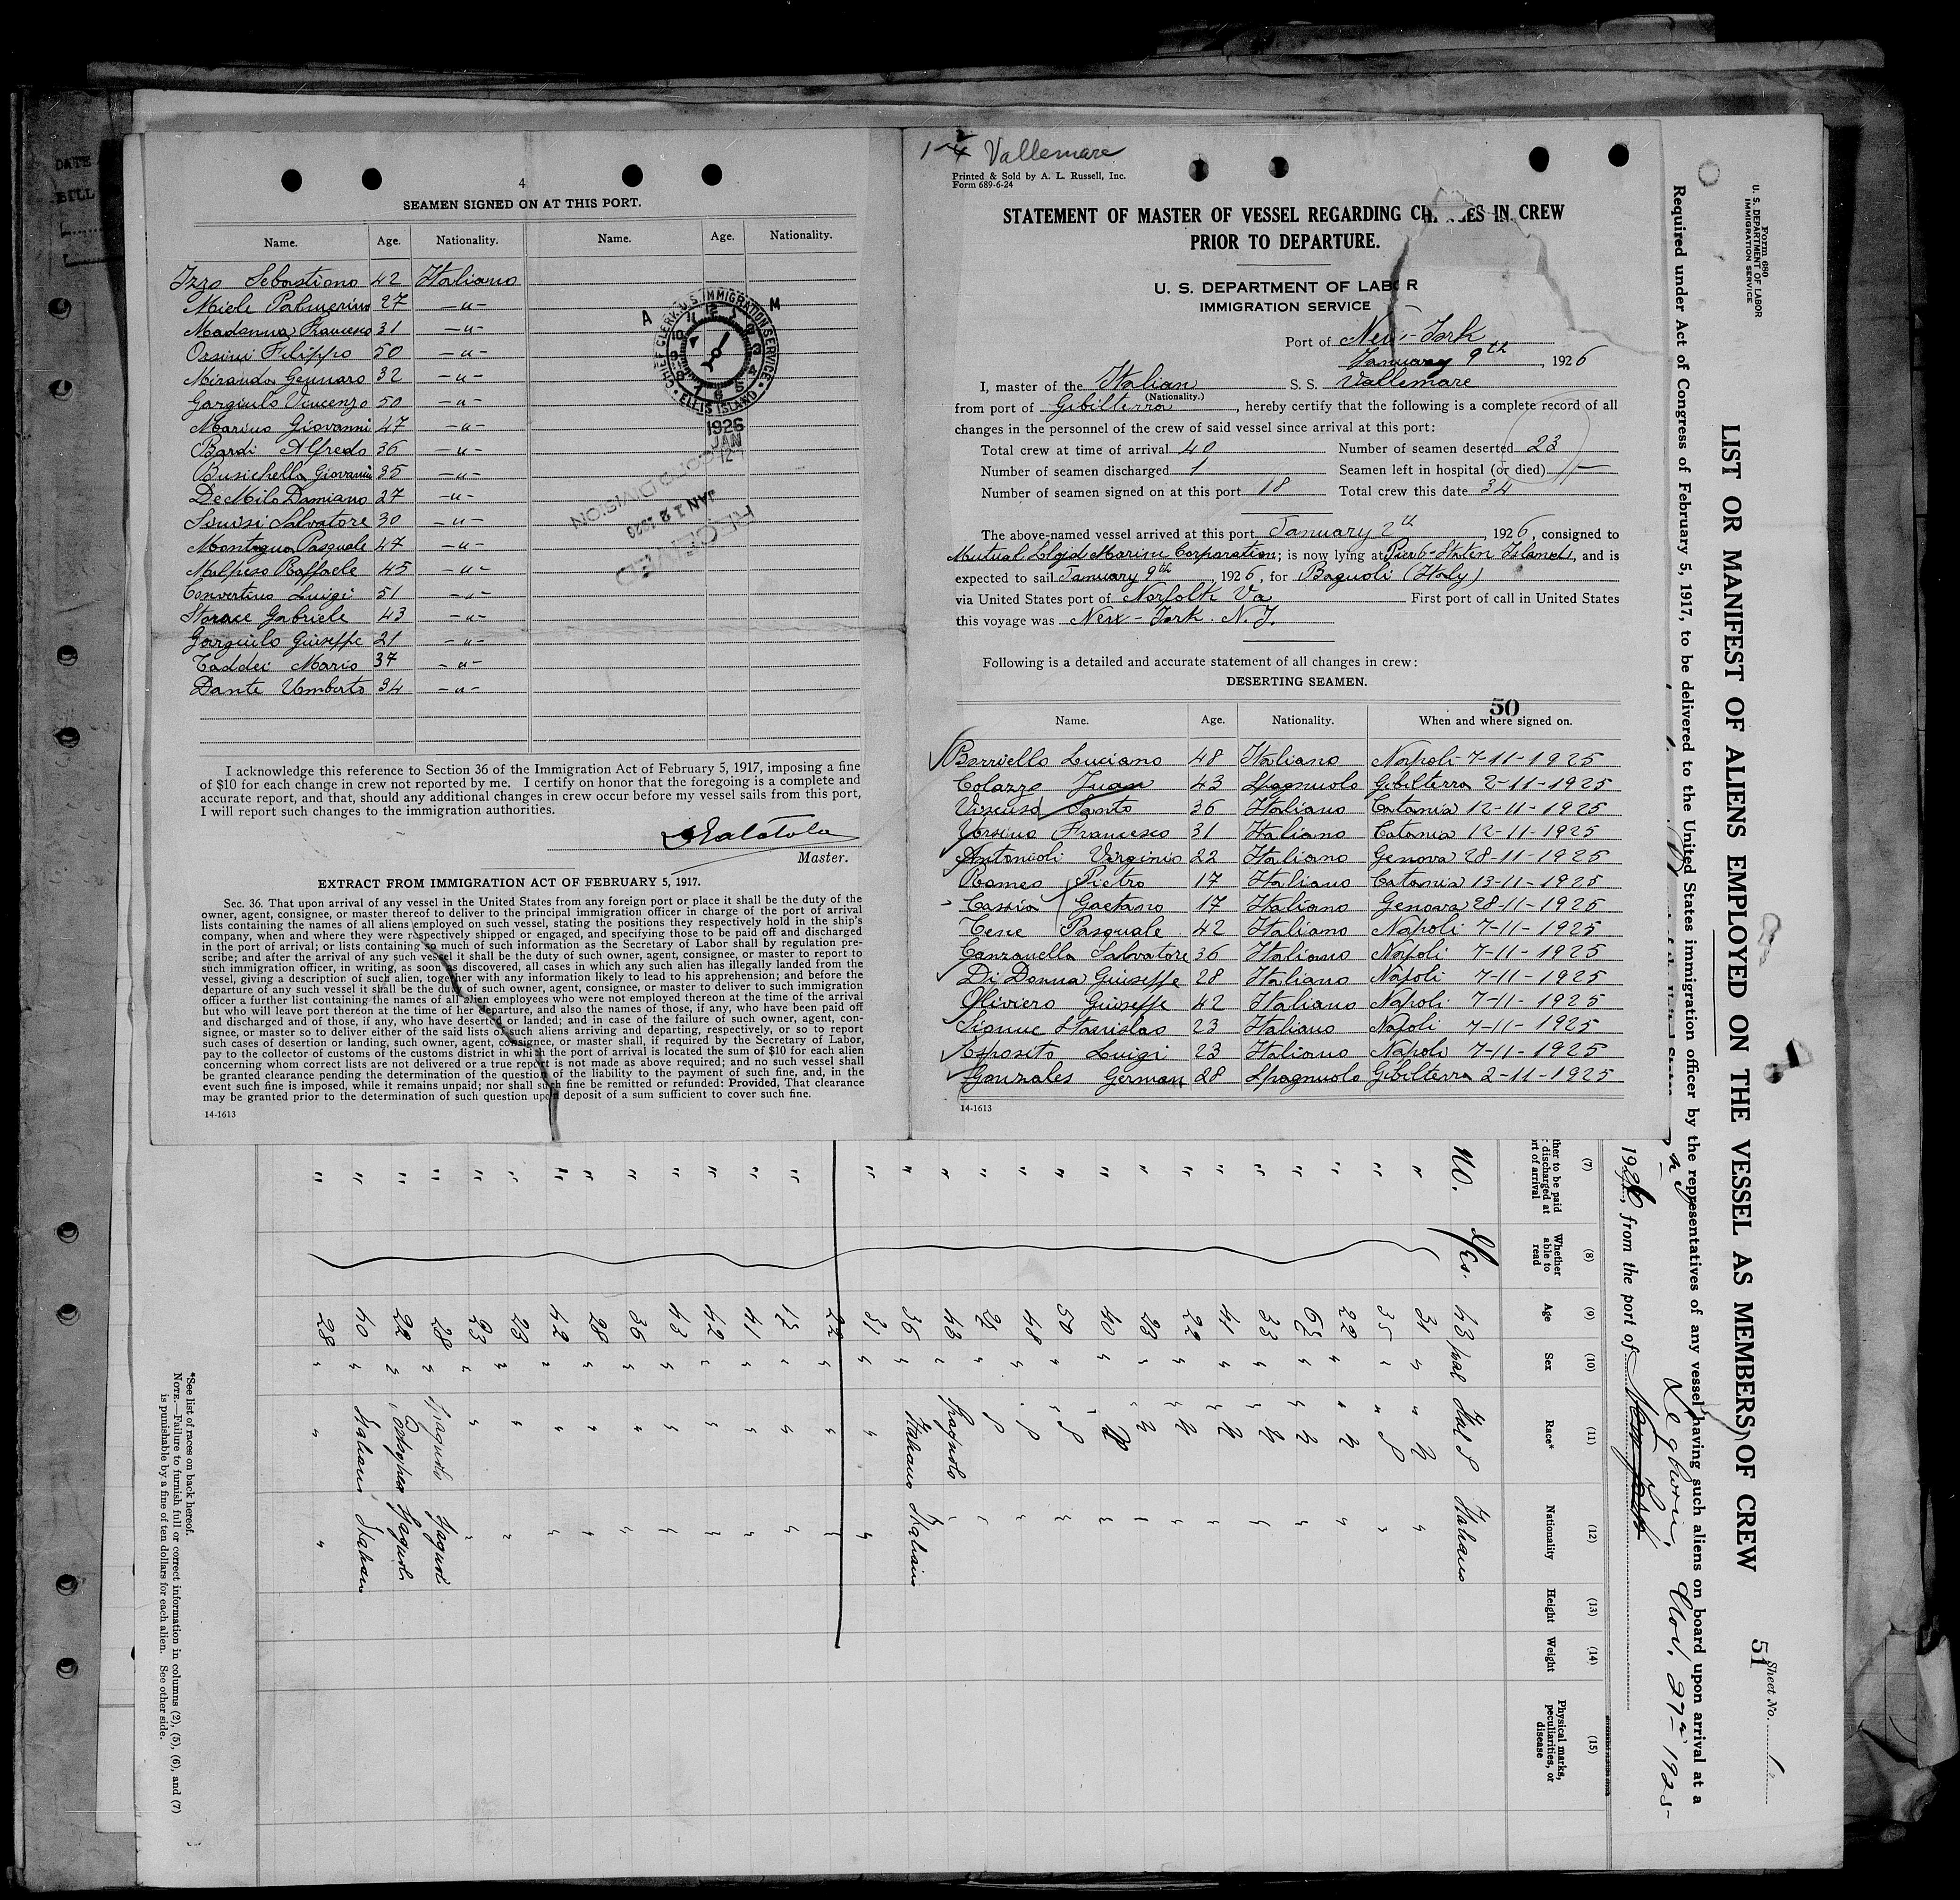 4
SEAMEN SIGNED ON AT THIS PORT.
Name. Age. Nationality. Name. Age. Nationality.
Izzo Sebastiano 42 Italiano
Miele Palmerino 27 -u-
Madanna Francesco 31 -u-
Orsini Filippo 50 -u-
Miranda Gennaro 32 -u-
Gargiulo Vincenzo 50 -u-
Marino Giovanni 47 -u-
Bardi Alfredo 36 -u-
Busichella Giovanni 35 -u-
De Milo Damiano 27 -u-
Salvatore 30 -u-
Montagna Pasquale 47 -u-
Raffaele 45 -u-
Convertino Luigi 51 -u-
Storace Gabriele 43 -u-
Gargiulo Giuseppe 21 -u-
Taddei Mario 37 -u-
Dante Umberto 34 -u-
A M
CHIEF CLERK U.S. IMMIGRATION SERVICE
ELLIS ISLAND
1926
JAN
12
RECORD DIVISION
JAN 12 1926
RECEIVED
I acknowledge this reference to Section 36 of the Immigration Act of February 5, 1917, imposing a fine
of $10 for each change in crew not reported by me. I certify on honor that the foregoing is a complete and
accurate report, and that, should any additional changes in crew occur before my vessel sails from this port,
I will report such changes to the immigration authorities.
Master.
EXTRACT FROM IMMIGRATION ACT OF FEBRUARY 5, 1917.
Sec. 36. That upon arrival of any vessel in the United States from any foreign port or place it shall be the duty of the
owner, agent, consignee, or master thereof to deliver to the principal immigration officer in charge of the port of arrival
lists containing the names of all aliens employed on such vessel, stating the positions they respectively hold in the ship's
company, when and where they were respectively shipped or engaged, and specifying those to be paid off and discharged
in the port of arrival; or lists containing so much of such information as the Secretary of Labor shall by regulation pre-
scribe; and after the arrival of any such vessel it shall be the duty of such owner, agent, consignee, or master to report to
such immigration officer, in writing, as soon as discovered, all cases in which any such alien has illegally landed from the
vessel, giving a description of such alien, together with any information likely to lead to his apprehension; and before the
departure of any such vessel it shall be the duty of such owner, agent, consignee, or master to deliver to such immigration
officer a further list containing the names of all alien employees who were not employed thereon at the time of the arrival
but who will leave port thereon at the time of her departure, and also the names of those, if any, who have been paid off
and discharged and of those, if any, who have deserted or landed; and in case of the failure of such owner, agent, con-
signee, or master so to deliver either of the said lists of such aliens arriving and departing, respectively, or so to report
such cases of desertion or landing, such owner, agent, consignee, or master shall, if required by the Secretary of Labor,
pay to the collector of customs of the customs district in which the port of arrival is located the sum of $10 for each alien
concerning whom correct lists are not delivered or a true report is not made as above required; and no such vessel shall
be granted clearance pending the determination of the question of the liability to the payment of such fine, and, in the
event such fine is imposed, while it remains unpaid; nor shall such fine be remitted or refunded: Provided, That clearance
may be granted prior to the determination of such question upon deposit of a sum sufficient to cover such fine.
14-1613
Vallemare
Printed & Sold by A. L. Russell, Inc.
Form 689-6-24
STATEMENT OF MASTER OF VESSEL REGARDING CHANGES IN CREW
PRIOR TO DEPARTURE.
U. S. DEPARTMENT OF LABOR
IMMIGRATION SERVICE
Port of New-York
January 9th, 1926
I, master of the Italian S. S. Vallemare
(Nationality.)
from port of Gibilterra, hereby certify that the following is a complete record of all
changes in the personnel of the crew of said vessel since arrival at this port:
Total crew at time of arrival 40 Number of seamen deserted 23
Number of seamen discharged 1 Seamen left in hospital (or died) —
Number of seamen signed on at this port 18 Total crew this date 34
The above-named vessel arrived at this port January 2th, 1926, consigned to
Mutual Lloyd Marine Corporation; is now lying at Pier 6-Staten Island, and is
expected to sail January 9th, 1926, for Bagnoli (Italy)
via United States port of Norfolk Va First port of call in United States
this voyage was New-York. N.Y.
Following is a detailed and accurate statement of all changes in crew:
DESERTING SEAMEN.
50
Name. Age. Nationality. When and where signed on.
Borriello Luciano 48 Italiano Napoli 7-11-1925
Colazzo Juan 43 Spagnuolo Gibilterra 2-11-1925
Santo 36 Italiano Catania 12-11-1925
Francesco 31 Italiano Catania 12-11-1925
Antonioli Virginio 22 Italiano Genova 28-11-1925
Romeo Pietro 17 Italiano Catania 13-11-1925
Cassia Gaetano 17 Italiano Genova 28-11-1925
Tene Pasquale 42 Italiano Napoli 7-11-1925
Canzanella Salvatore 36 Italiano Napoli 7-11-1925
Di Donna Giuseppe 28 Italiano Napoli 7-11-1925
Oliviero Giuseppe 42 Italiano Napoli 7-11-1925
Stanislao 23 Italiano Napoli 7-11-1925
Esposito Luigi 23 Italiano Napoli 7-11-1925
Gonzales German 28 Spagnuolo Gibilterra 2-11-1925
14-1613
Form 680
U. S. DEPARTMENT OF LABOR
IMMIGRATION SERVICE
Sheet No. 1
51
LIST OR MANIFEST OF ALIENS EMPLOYED ON THE VESSEL AS MEMBERS OF CREW
Required under Act of Congress of February 5, 1917, to be delivered to the United States immigration officer by the representatives of any vessel having such aliens on board upon arrival at a
Leghorn, Nov. 27th 1925
1926, from the port of New York
(7) (8) (9) (10) (11) (12) (13) (14) (15)
Whether able to read
Age
Sex
Race*
Nationality
Height
Weight
Physical marks, peculiarities, or disease
NO. Yes. 43 Mal Ital S Italiano
31
35
22
33
41
22
23
40
50
48
43 Spagnolo
36 Italiano Italiano
31
22
41
42
43
36
28
42
23
23
28
22
40 Italiano Italiano
28
*See list of races on back hereof.
NOTE.—Failure to furnish full or correct information in columns (2), (5), (6), and (7)
is punishable by a fine of ten dollars for each alien. See other side.
DATE
BILL